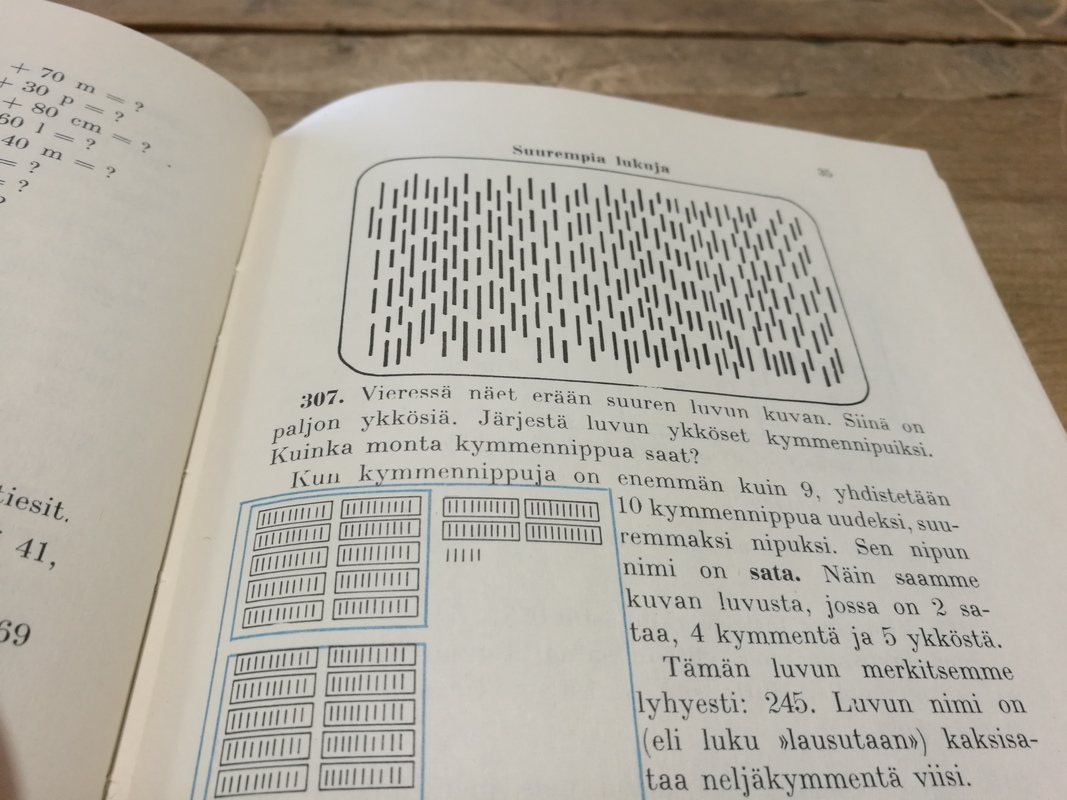 + 70 m = ?
+ 30 p = ?
+ 80 cm = ?
60 l = ?
40 m = ?
= ?
= ?
?
tiesit.
41,
69
Suurempia lukuja
35
307. Vieressä näet erään suuren luvun kuvan. Siinä on
paljon ykkösiä. Järjestä luvun ykköset kymmennipuiksi.
Kuinka monta kymmennippua saat?
Kun kymmennippuja on enemmän kuin 9, yhdistetään
10 kymmennippua uudeksi, suu-
remmaksi nipuksi. Sen nipun
nimi on sata. Näin saamme
kuvan luvusta, jossa on 2 sa-
taa, 4 kymmentä ja 5 ykköstä.
Tämän luvun merkitsemme
lyhyesti: 245. Luvun nimi on
(eli luku »lausutaan») kaksisa-
taa neljäkymmentä viisi.